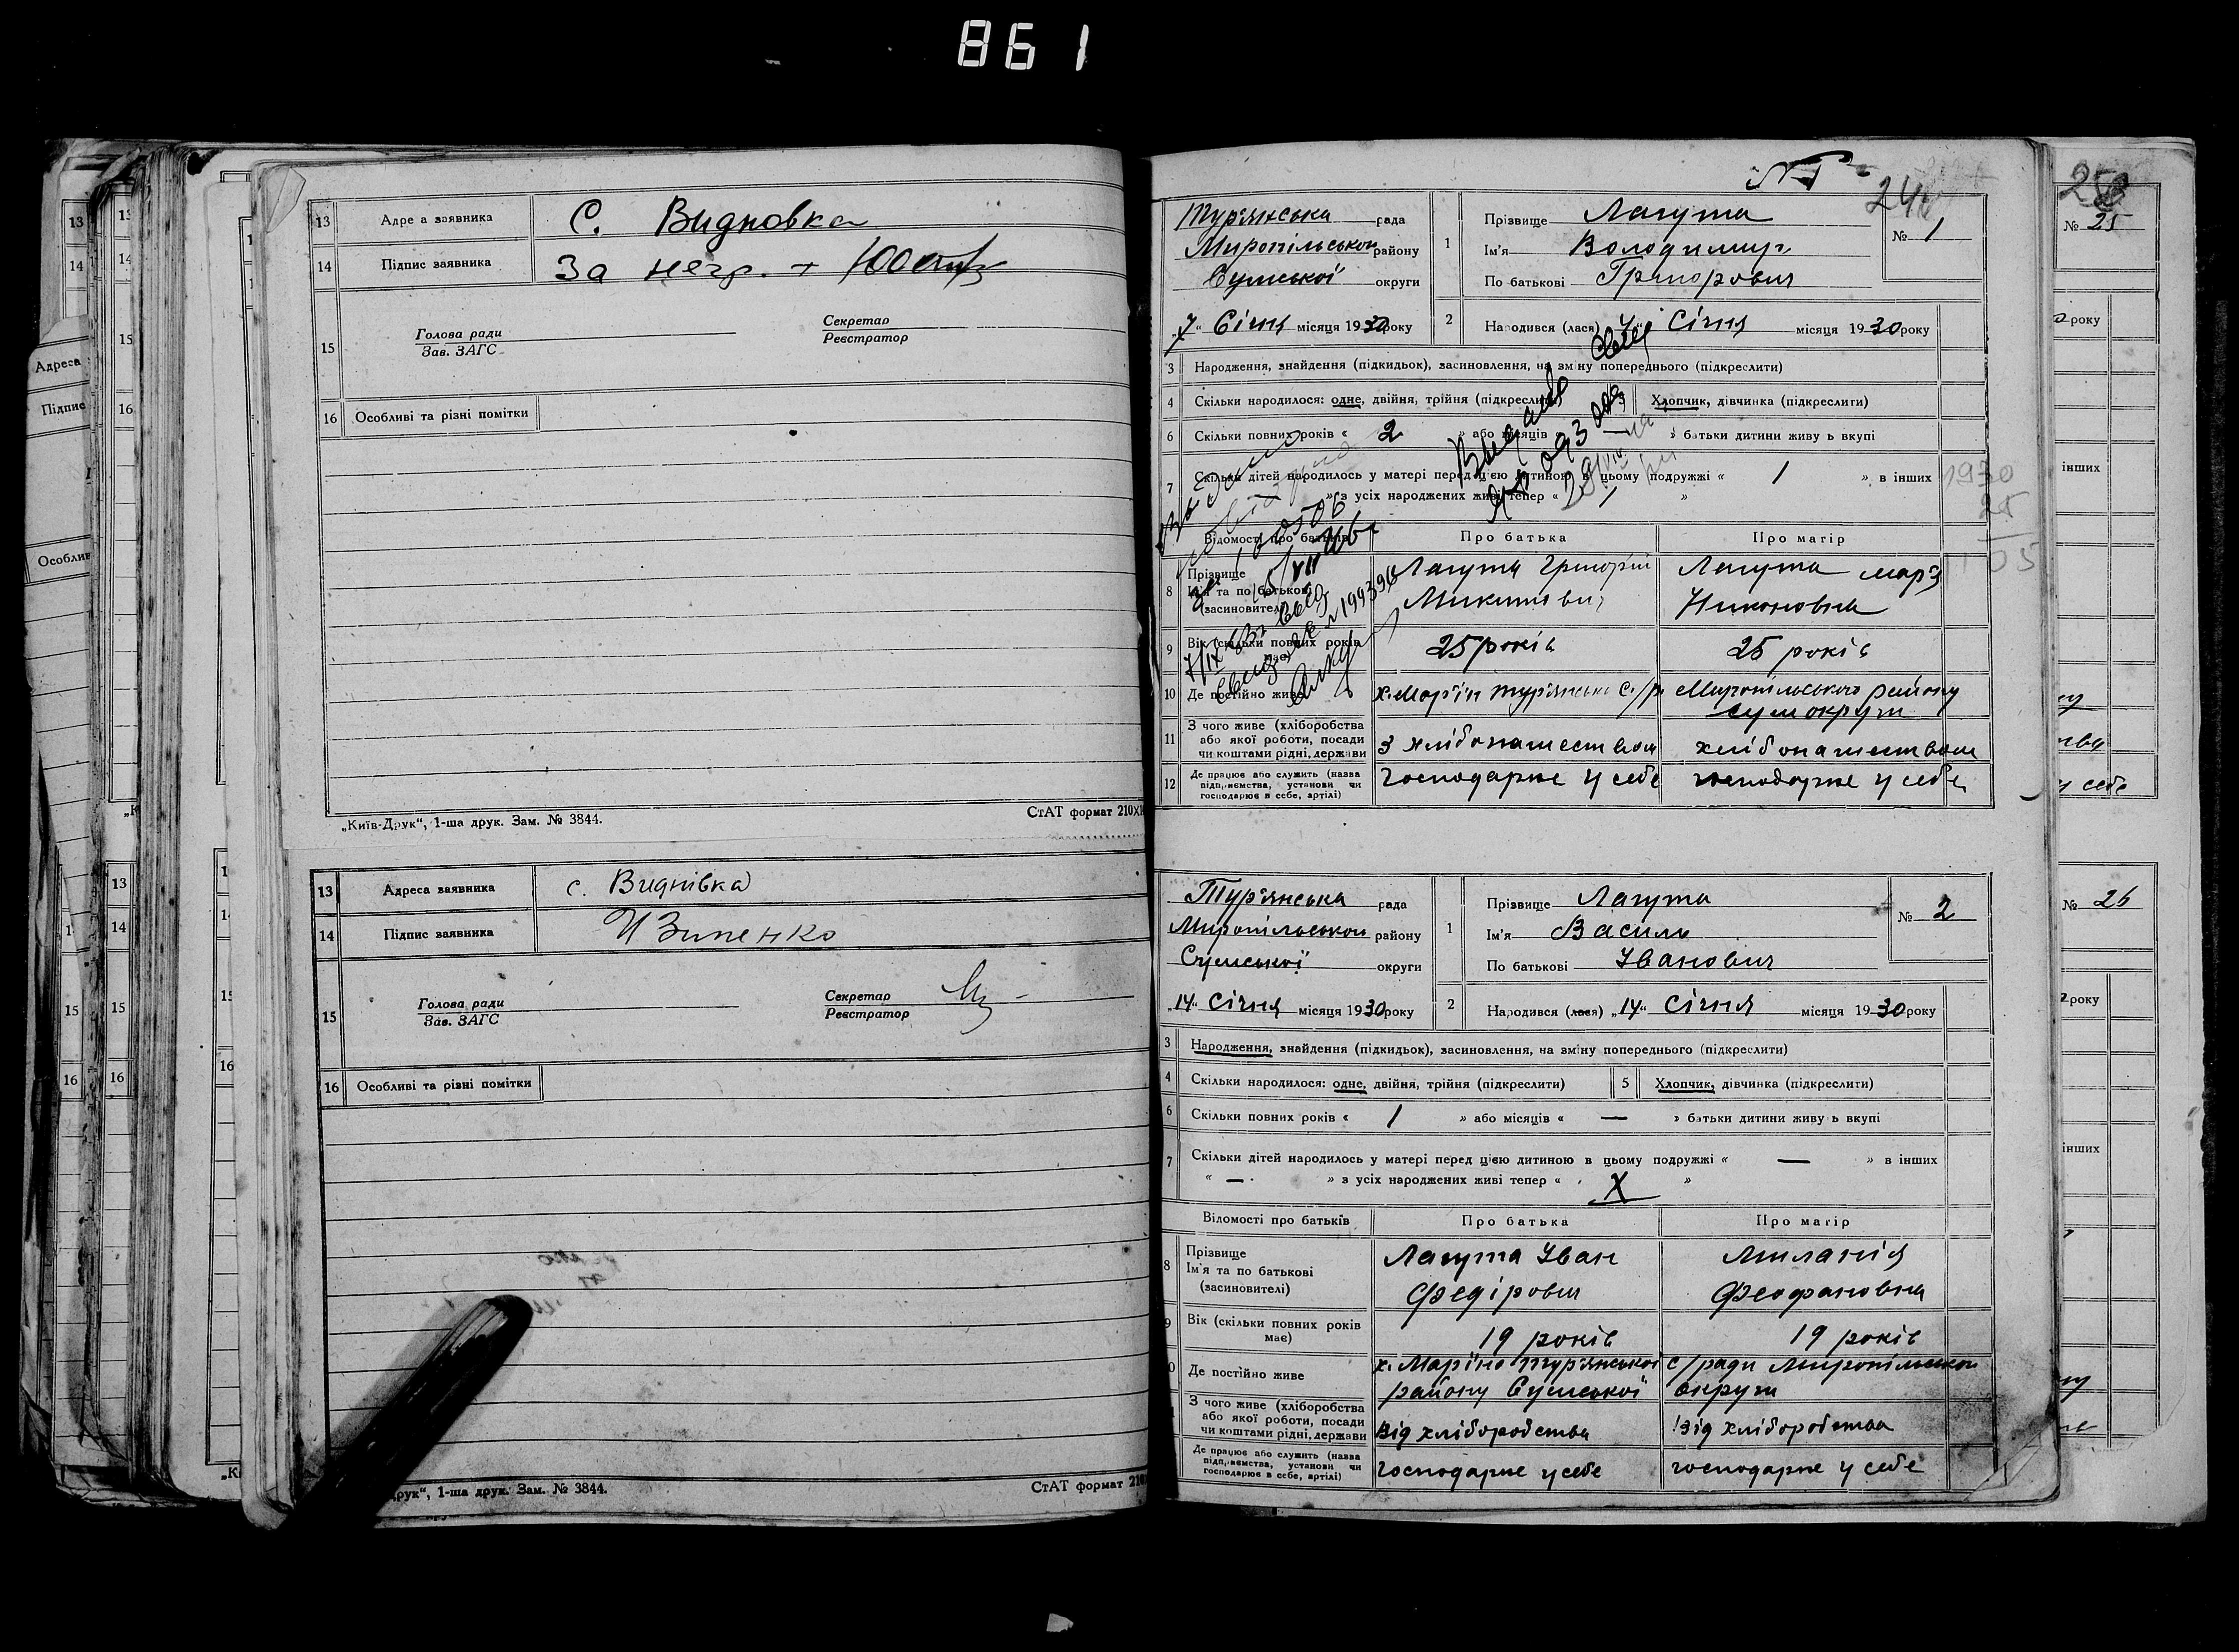 861
13 Адреса заявника С. Видновка
14 Підпис заявника За негр. +
15 Голова ради Секретар
Зав. ЗАГС Реєстратор
16 Особливі та різні помітки
„Київ-Друк“, 1-ша друк. Зам. № 3844. СтАТ формат 210
13 Адреса заявника с. Виднівка
14 Підпис заявника И Зиненко
15 Голова ради Секретар
Зав. ЗАГС Реєстратор
16 Особливі та різні помітки
друк“, 1-ша друк. Зам. № 3844. СтАТ формат 210
№ 1
24
Тур'янська рада
Миропільської району
Сумської округи
„7“ Січня місяця 1930 року
1 Прізвище Лагута
№ 1
Ім'я Володимир
По батькові Григорович
2 Народився (лася) „4“ Січня місяця 1930 року
3 Народження, знайдення (підкидьок), засиновлення, на зміну попереднього (підкреслити)
4 Скільки народилося: одне, двійня, трійня (підкреслити) 5 Хлопчик, дівчинка (підкреслити)
6 Скільки повних років « 2 » або місяців » батьки дитини живуть вкупі
7 Скільки дітей народилось у матері перед цією дитиною в цьому подружжі « 1 » в інших
» з усіх народжених живі тепер « 1 »
1930
25
Відомості про батьків Про батька Про матір
8 Прізвище
Ім'я та по батькові
(засновителі)
Лагута Григорій
Микитович
Лагута Мар'я
Никоновна
9 Вік (скільки повних років має) 25 років 25 років
10 Де постійно живе х. Мар'їн Тур'янська с./р. Миропільського району
Сумокруги
11 З чого живе (хліборобства
або якої роботи, посади
чи коштами рідні, держави
з хлібопашеством хлібопашеством
12 Де працює або служить (назва
підприємства, установи чи
господарює в себе, артілі)
господарює у себе господарює у себе
Тур'янська рада
Миропільської району
Сумської округи
„14“ Січня місяця 1930 року
1 Прізвище Лагута
№ 2
Ім'я Василь
По батькові Іванович
2 Народився (лася) „14“ Січня місяця 1930 року
3 Народження, знайдення (підкидьок), засиновлення, на зміну попереднього (підкреслити)
4 Скільки народилося: одне, двійня, трійня (підкреслити) 5 Хлопчик, дівчинка (підкреслити)
6 Скільки повних років « 1 » або місяців « — » батьки дитини живуть вкупі
7 Скільки дітей народилось у матері перед цією дитиною в цьому подружжі « — » в інших
« — » з усіх народжених живі тепер « X »
Відомості про батьків Про батька Про матір
8 Прізвище
Ім'я та по батькові
(засиновителі)
Лагута Іван
Федірович
Миланія
Феофановна
9 Вік (скільки повних років має) 19 років 19 років
Де постійно живе х. Мар'їно Тур'янської с/ради Миропільської
району Сумської округи
З чого живе (хліборобства
або якої роботи, посади
чи коштами рідні, держави
Від хліборобства Від хліборобства
Де працює або служить (назва
підприємства, установи чи
господарює в себе, артілі)
господарює у себе господарює у себе
№ 25
року
інших
у себе
№ 26
року
інших